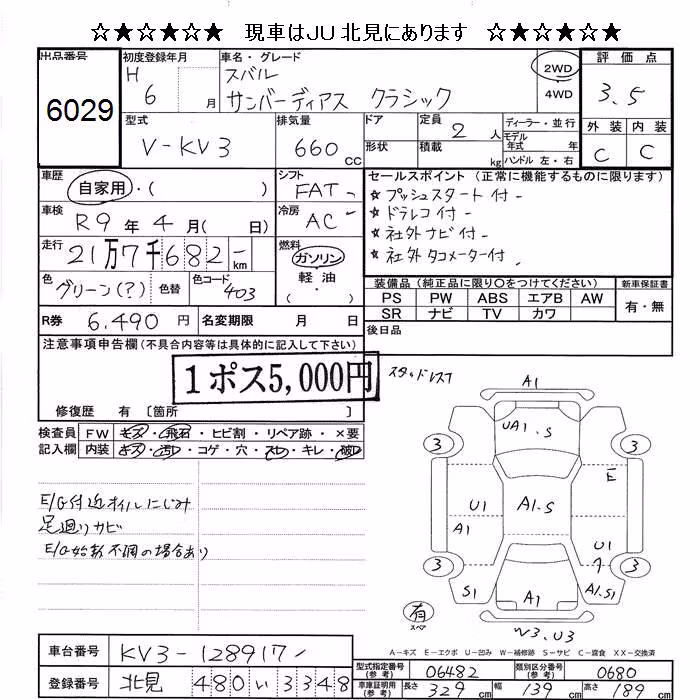 ☆★☆★☆★ 現車はJU北見にあります ☆★☆★☆★
出品番号 6029
初度登録年月 H 6 月
車名・グレード スバル サンバーディアス クラシック
2WD ・ 4WD
評価点 3.5
外装 C 内装 C
型式 V-KV3
排気量 660 cc
ドア 形状
定員 2 人
積載 kg
ディーラー・並行
モデル年式 年
ハンドル 左・右
車歴 自家用・( )
シフト FAT
車検 R9 年 4 月( 日)
冷房 AC
走行 21万7千682 km
燃料 ガソリン ・ 軽油 ( )
色 グリーン(?) 色替 色コード 403
セールスポイント(正常に機能するものに限ります)
☆プッシュスタート付
☆ドラレコ付
☆社外ナビ付
☆社外タコメーター付
装備品(純正品に限り○をつけてください) 新車保証書
PS PW ABS エアB AW
SR ナビ TV カワ
有・無
R券 6,490 円 名変期限 月 日
後日品
注意事項申告欄(不具合内容等は具体的に記入して下さい)
1ポス5,000円
スタッドレス
修復歴 有〔箇所 〕
検査員記入欄
FW キズ・飛石・ヒビ割・リペア跡・×要
内装 キズ・汚レ・コゲ・穴・スレ・キレ・破レ
E/G付近オイルにじみ
足廻りサビ
E/G始動不調の場合あり
A1
UA1.S
3
3
E1
U1
A1.S
A1
U1
3
3
S1
A1
A1.S1
有
スペア
W3.U3
A-キズ E-エクボ U-凹み W-補修跡 S-サビ C-腐食 XX-交換済
車台番号 KV3-128917
登録番号 北見 480 い 3348
型式指定番号(参考) 06482 類別区分番号(参考) 0680
車庫証明用(参考) 長さ 329 cm 幅 139 cm 高さ 189 cm